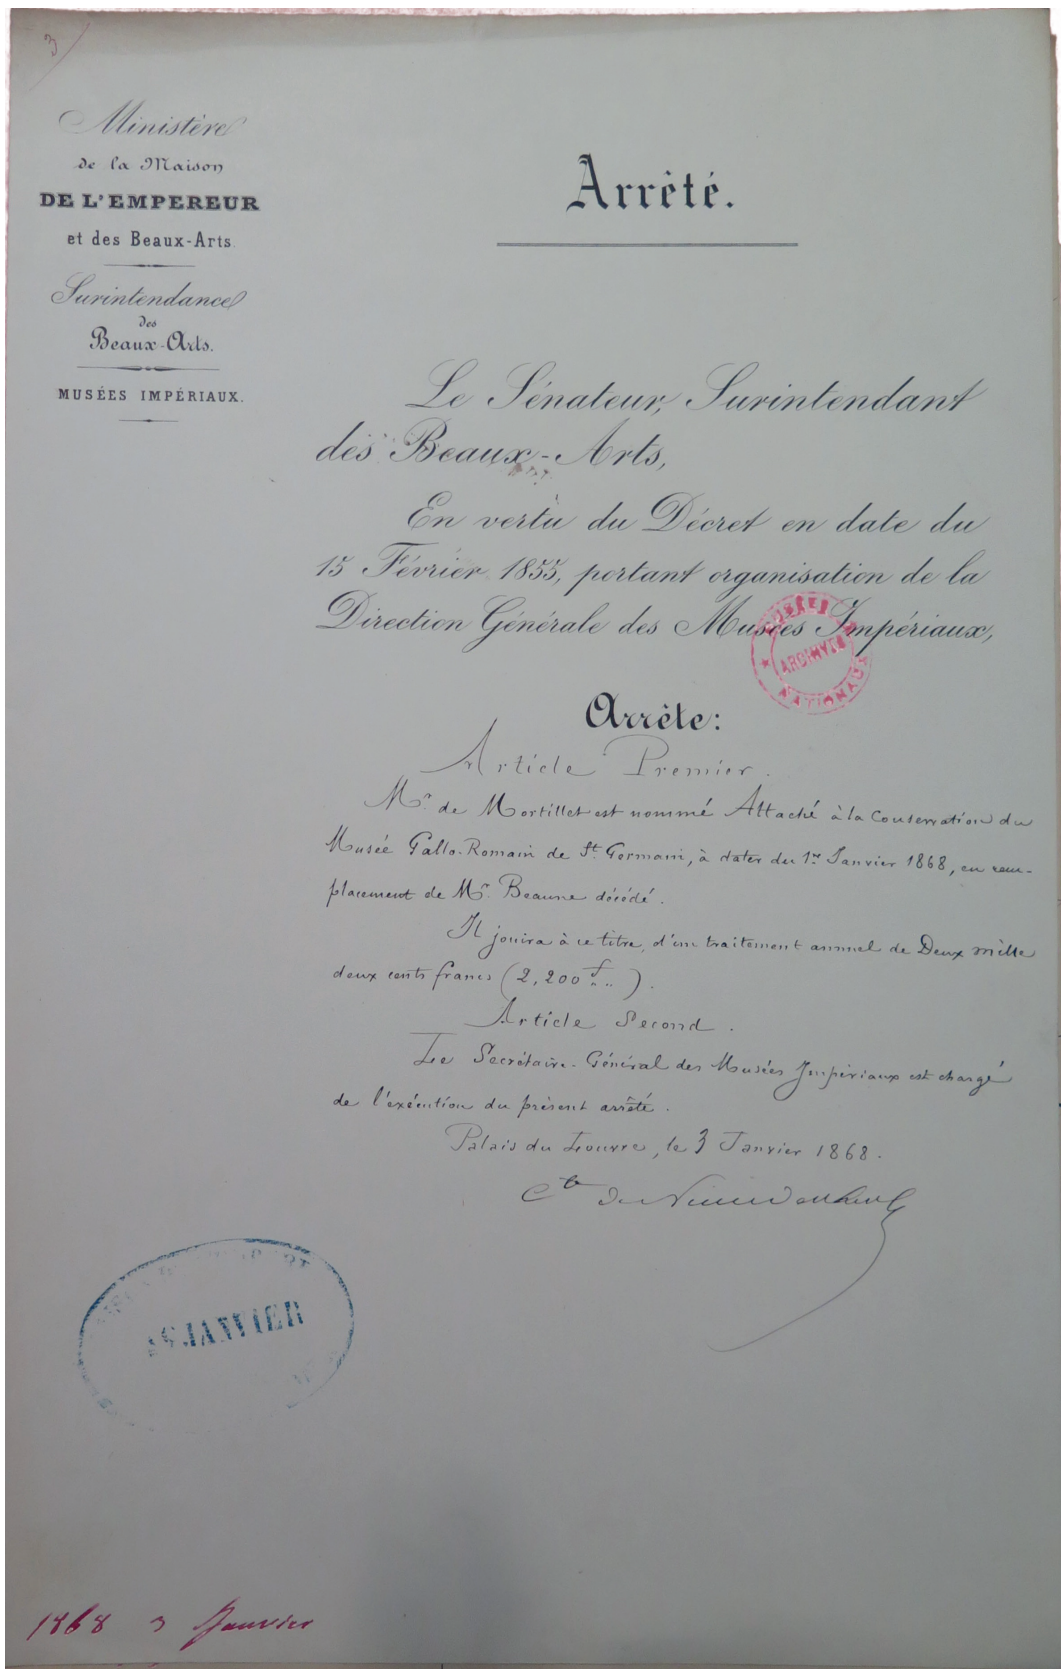 3
Ministère
de la Maison
DE L'EMPEREUR
et des Beaux-Arts.
Surintendance
des
Beaux-Arts.
MUSÉES IMPÉRIAUX.
Arrêté.
Le Sénateur, Surintendant
des Beaux-Arts,
En vertu du Décret en date du
15 Février 1855, portant organisation de la
Direction Générale des Musées Impériaux,
MUSÉES
ARCHIVES
NATIONAUX
Arrête:
Article Premier.
Mr. de Mortillet est nommé Attaché à la Conservation du
Musée Gallo-Romain de St. Germain, à dater du 1er Janvier 1868, en rem-
placement de Mr. Beaune décédé.
Il jouira à ce titre, d'un traitement annuel de Deux mille
deux cents francs (2,200 f).
Article Second.
Le Secrétaire-Général des Musées Impériaux est chargé
de l'exécution du présent arrêté.
Palais du Louvre, le 3 Janvier 1868.
Cte de Nieuwerkerke
JANVIER
1868 3 Janvier